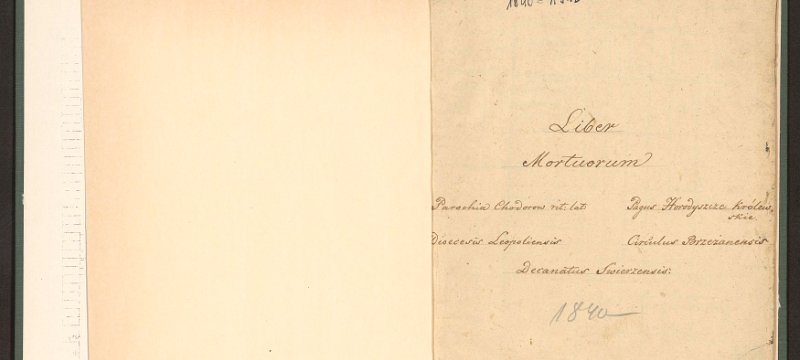 Liber
Mortuorum
Parochia Chodorow rit. lat. Pagus Horodyszcze Królew-
skie
Dioecesis Leopoliensis Circulus Brzezanensis
Decanatus Swierzensis.
1840